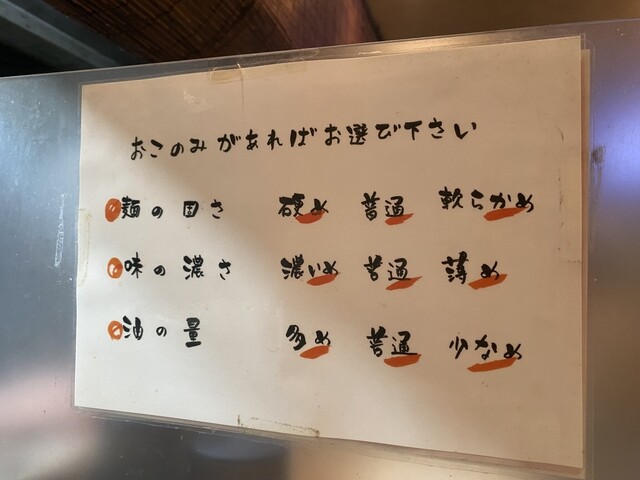 おこのみがあればお選び下さい
麺の固さ 硬め 普通 軟らかめ
味の濃さ 濃いめ 普通 薄め
油の量 多め 普通 少なめ